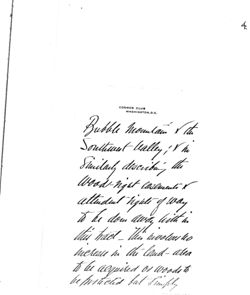 4
COSMOS CLUB
WASHINGTON, D.C.
Bubble Mountain & the
Southwest Valley; & in
Similarly describing the
wood-right easements &
attendant rights of way
to be done away with in
this tract - This involves no
increase in the land-area
to be acquired or woods to
be protected but simply